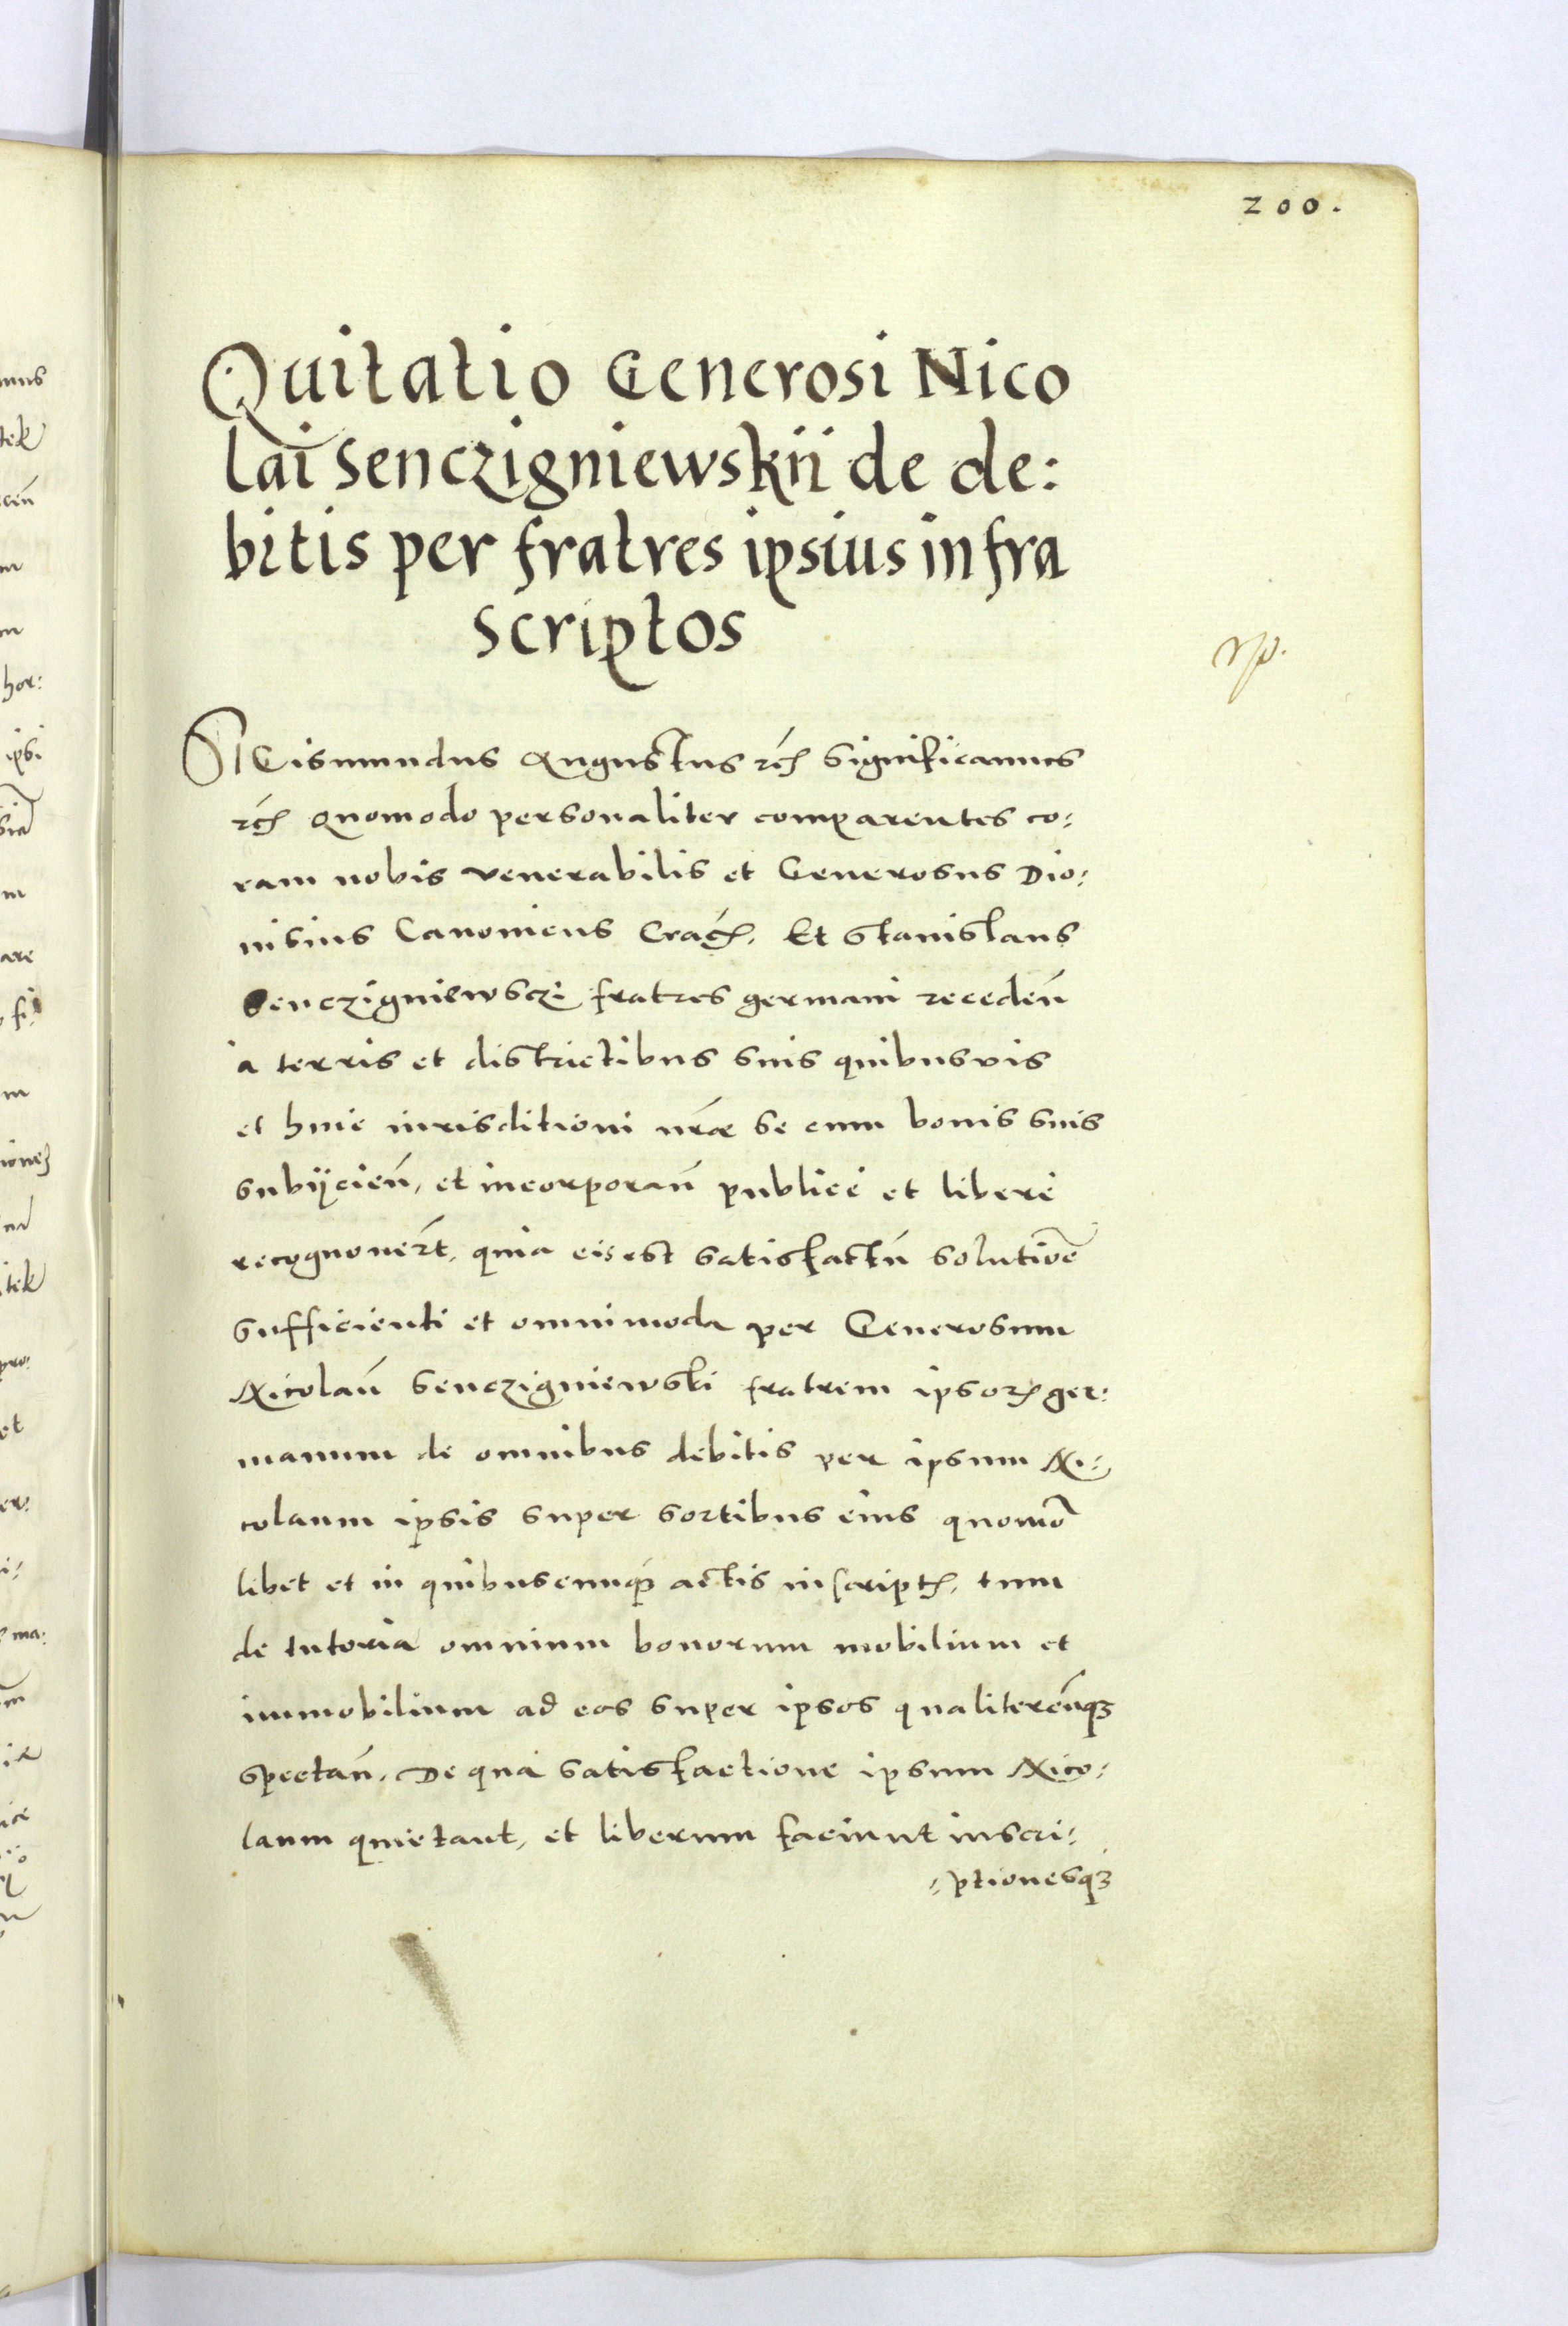 200.
Quitatio Generosi Nico
lai Senczigniewskii de de:
bitis per fratres ipsius infra
scriptos
SIGismundus Augustus rcꝭ Significamus
rcꝭ Quomodo personaliter comparentes co:
ram nobis venerabilis et Generosus Dio:
nisius Canonicus Cracꝭ. Et Stanislaus
Senczigniewsczi fratres germani receden̄
a terris et districtibus suis quibusvis
et huic iurisditioni nr̃æ se cum bonis suis
subijcien̄, et incorporan̄ publicè et liberè
recognouer̃t, quia eis est satisfactū solutiōe
sufficienti et omnimoda per Generosum
Nicolaū Senczigniewski fratrem ipsorꝭ ger:
manum de omnibus debitis per ipsum Ni:
colaum ipsis super sortibus eius quomō
libet et in quibuscunqꝫ actis inscriptꝭ, tum
de tutoria omnium bonorum mobilium et
immobilium ad eos super ipsos qualitercūqꝫ
spectan̄. De qua satisfactione ipsum Nico:
laum quietant, et liberum faciunt inscri:
:ptionesqꝫ
mus
tek
cen̄
m
hor:
ipsi
m
are
fi:
m
tek
pro:
et
er:
i:
ma: